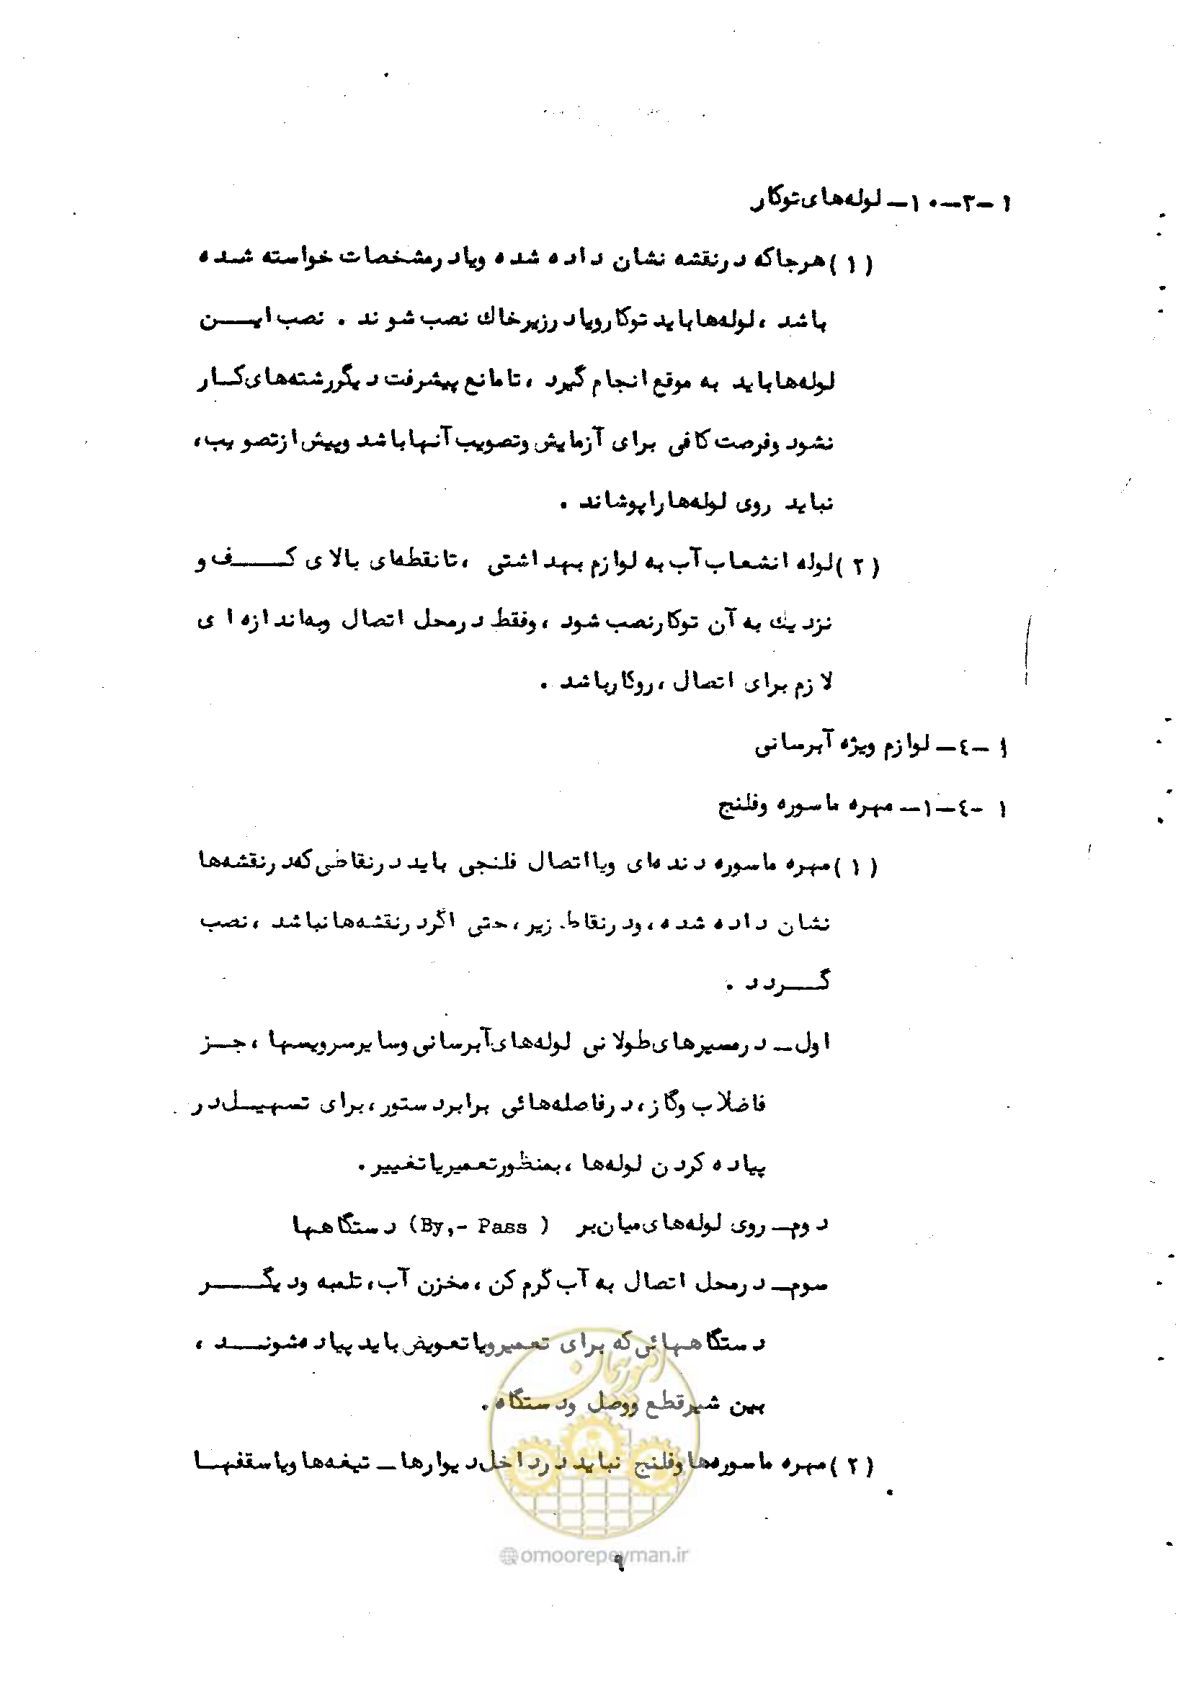 ۱-۳-۱۰- لوله‌های توکار
(۱) هرجاکه درنقشه نشان داده شده ویادرمشخصات خواسته شده
باشد ، لوله‌هاباید توکارویادرزیرخاك نصب شوند . نصب ایــن
لوله‌هاباید به موقع انجام گیرد ، تامانع پیشرفت دیگررشته‌های کــار
نشود وفرصت کافی برای آزمایش وتصویب آنهاباشد وپیش ازتصویب،
نباید روی لوله‌هاراپوشاند .
(۲) لوله انشعاب آب به لوازم بهداشتی ، تانقطه‌ای بالای کــف و
نزدیك به آن توکارنصب شود ، وفقط درمحل اتصال وبه‌اندازه ای
لازم برای اتصال ، روکارباشد .
۱-٤- لوازم ویژه آبرسانی
۱-٤-۱- مهره ماسوره وفلنج
(۱) مهره ماسوره دنده‌ای ویااتصال فلنجی باید درنقاطی‌که‌درنقشه‌ها
نشان داده شده ، ودرنقاط زیر ، حتی اگردرنقشه‌هانباشد ، نصب
گــردد .
اول- درمسیرهای طولانی لوله‌های آبرسانی وسایرسرویسها ، جــز
فاضلاب وگاز ، درفاصله‌هائی برابردستور ، برای تسهیــل‌در
پیاده کردن لوله‌ها ، بمنظورتعمیریاتغییر .
دوم- روی لوله‌های میان‌بر (By,- Pass) دستگاهها
سوم- درمحل اتصال به آب گرم کن ، مخزن آب، تلمبه ودیگــر
دستگاههائی‌که برای تعمیرویاتعویض باید پیاده‌شونــد ،
بین شیرقطع ووصل ودستگاه .
(۲) مهره ماسوره‌ها وفلنج نباید درداخل‌دیوارها - تیغه‌ها ویاسقفهــا
امور پیمان
@omoorepeyman.ir
۹